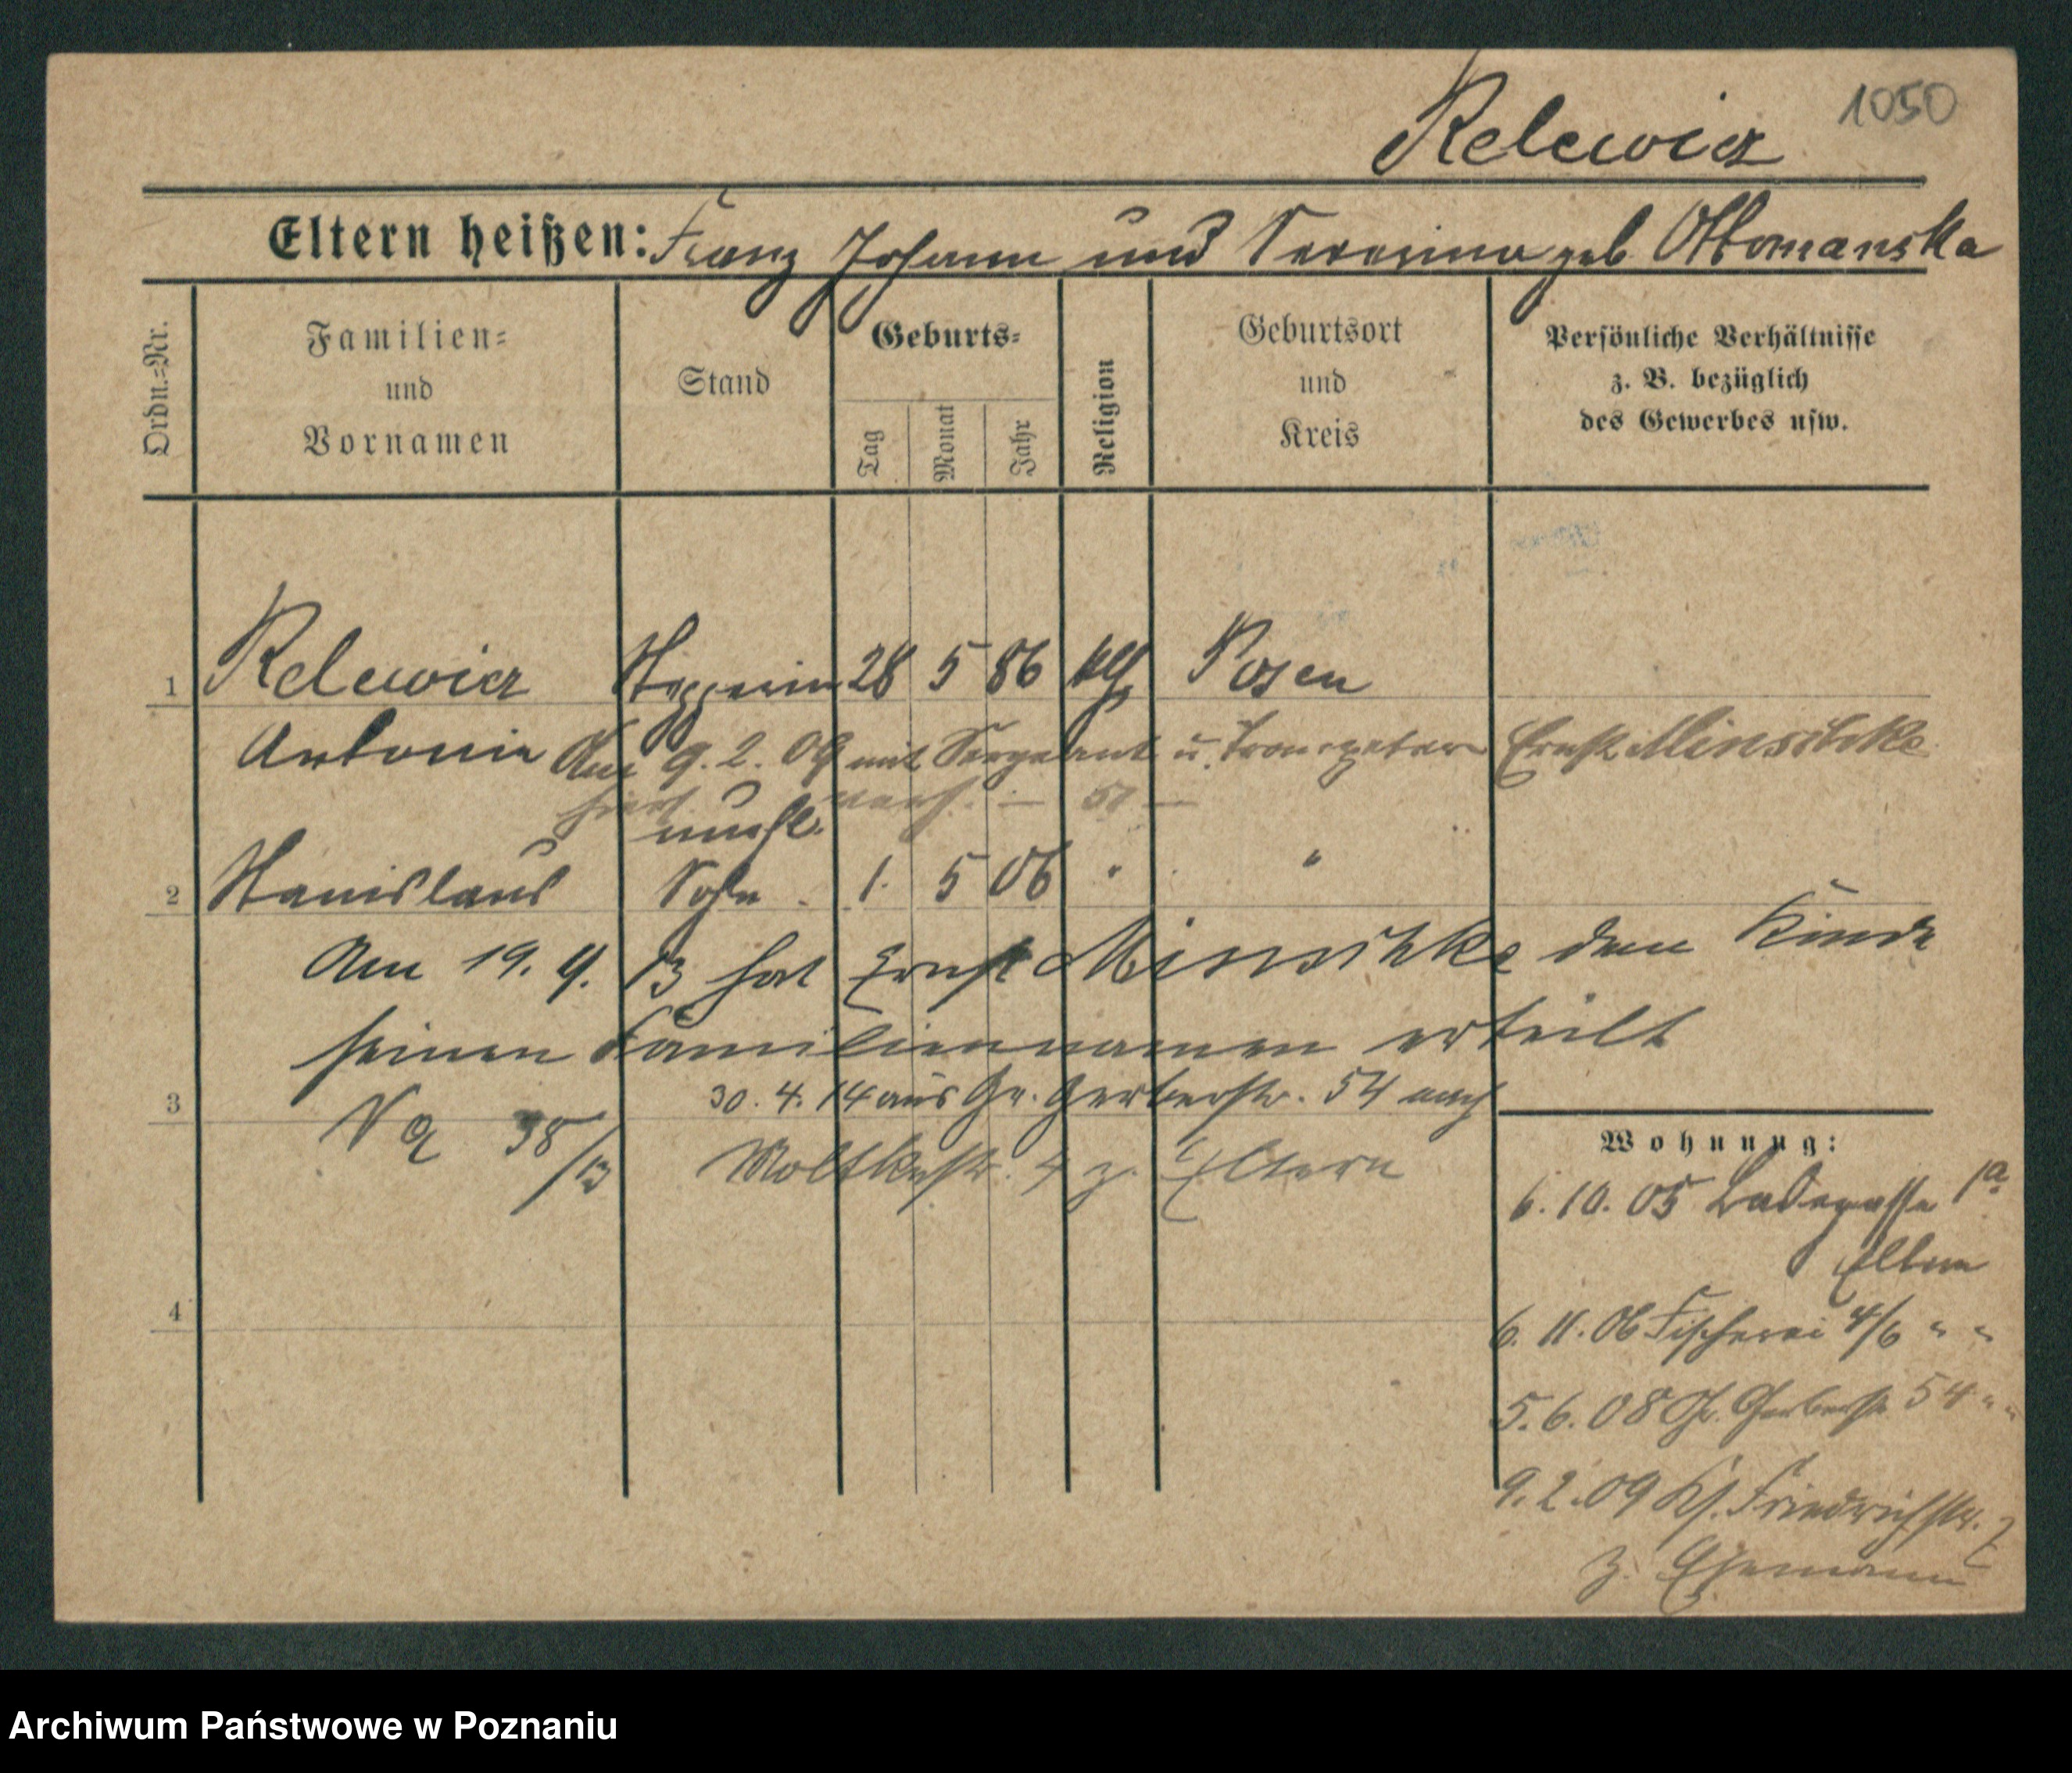 1050
Relewicz
Eltern heißen: Franz Johann und Severina geb Ottomanska
Ordn.-Nr.
Familien-
und
Vornamen
Stand
Geburts-
Tag
Monat
Jahr
Religion
Geburtsort
und
Kreis
Persönliche Verhältnisse
z. B. bezüglich
des Gewerbes usw.
1 Relewicz 28 5 86 kth Posen
Antonie Am 9. 2. 09 mit Sergeant u. Trompeter Ernst Minschke
hier verh. — 51 —
unehl.
2 Stanislaus Sohn 1. 5 06 " "
Am 19. 4. 13 hat Ernst Minschke dem Kinde
seinen Familiennamen erteilt
3
30. 4. 14 aus Gr. Gerberstr. 54 nach
38/13
Moltkestr. 4 z. Eltern
Wohnung:
6. 10. 05 Badegasse 1a
Eltern
4
6. 11. 06 Fischerei 4/6 " "
5. 6. 08 Gr. Gerberstr 54 " "
9. 2. 09 Kl. Friedrichstr.
z. Ehemann
Archiwum Państwowe w Poznaniu